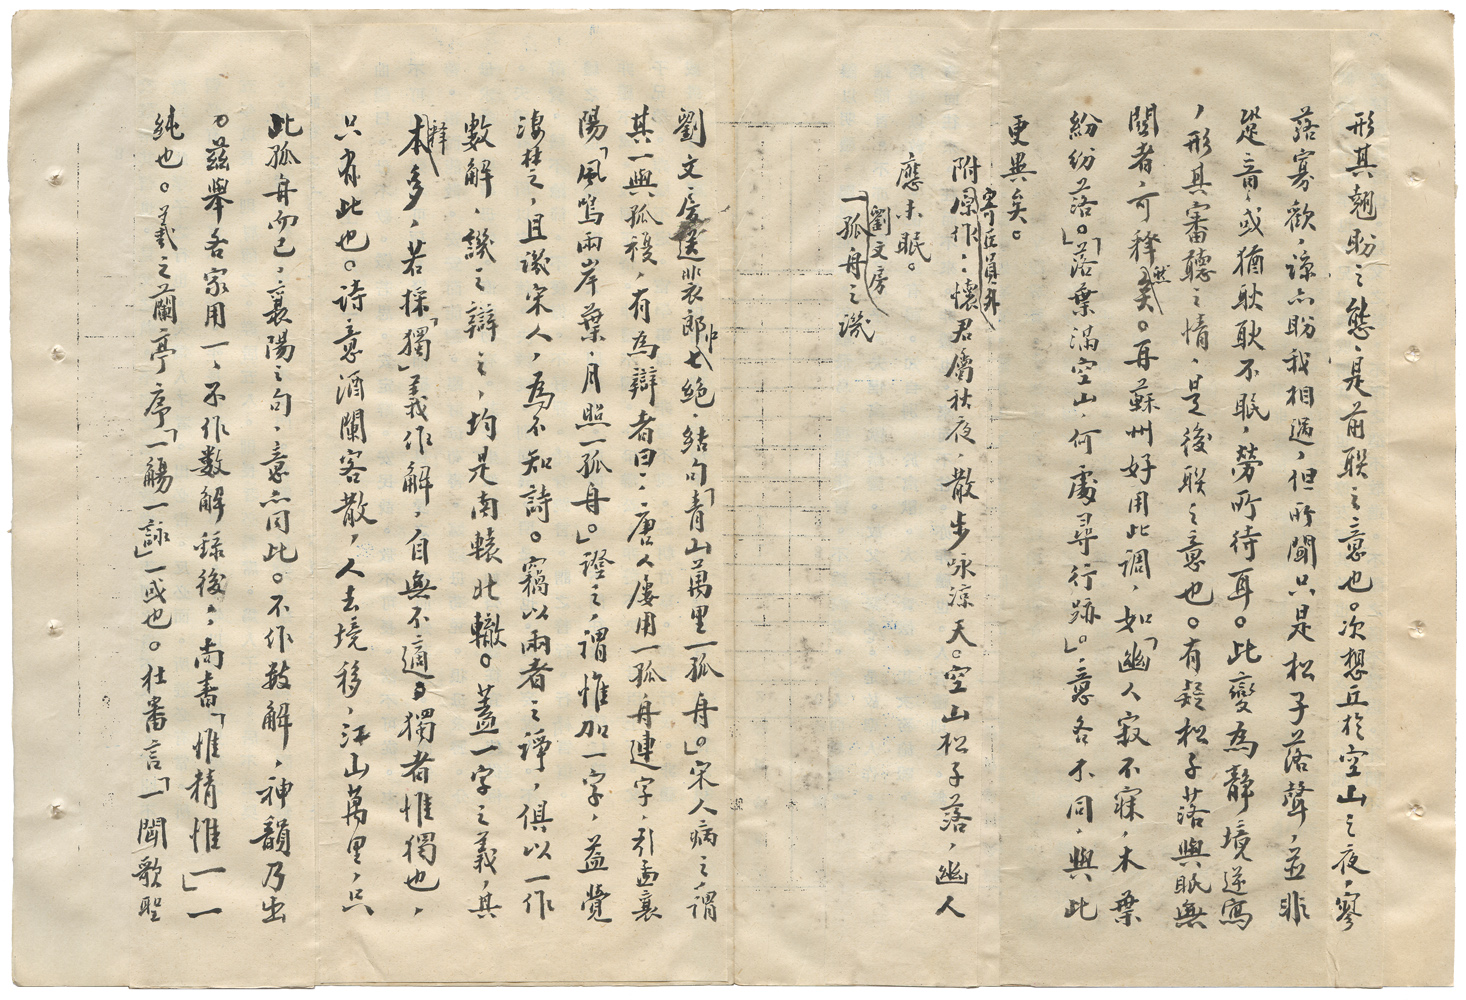 形其翹盼之態、是前聯之意也。次想丘於空山之夜，寥
落寡歡，諒亦盼我相過，但所聞只是松子落聲，並非
跫音，或猶耿耿不眠，勞所待耳。此變為靜境逆寫
，形其審聽之情，是後聯之意也。有疑松子落與眠無
關者，可釋然矣。再蘇州好用此調，如「幽人寂不寐，木葉
紛紛落。」「落葉滿空山，何處尋行跡」。意各不同，與此
更異矣。
附原作：寄丘員外 懷君屬秋夜，散步咏涼天。空山松子落，幽人
應未眠。
劉文房
一孤舟之譏
劉文房送裴郎中七絕，結句「青山萬里一孤舟。」宋人病之，謂
其一與孤複，有為辯者曰：唐人屢用一孤舟連字，引孟襄
陽「風鳴兩岸葉，月照一孤舟。」證之，謂惟加一字，益覺
淒楚，且譏宋人，為不知詩。竊以兩者之諍，俱以一作
數解，譏之辯之，均是南轅北轍。蓋一字之義，其
本多，若採「獨」義作解，自無不適。獨者惟獨也，
只有此也。詩意酒闌客散，人去境移，江山萬里，只
此孤舟而已，襄陽之句，意亦同此。不作數解，神韻乃出
。茲舉各家用一，不作數解錄後，尚書「惟精惟一」一
純也。羲之蘭亭序「一觴一詠」一或也。杜審言「一聞歌聖